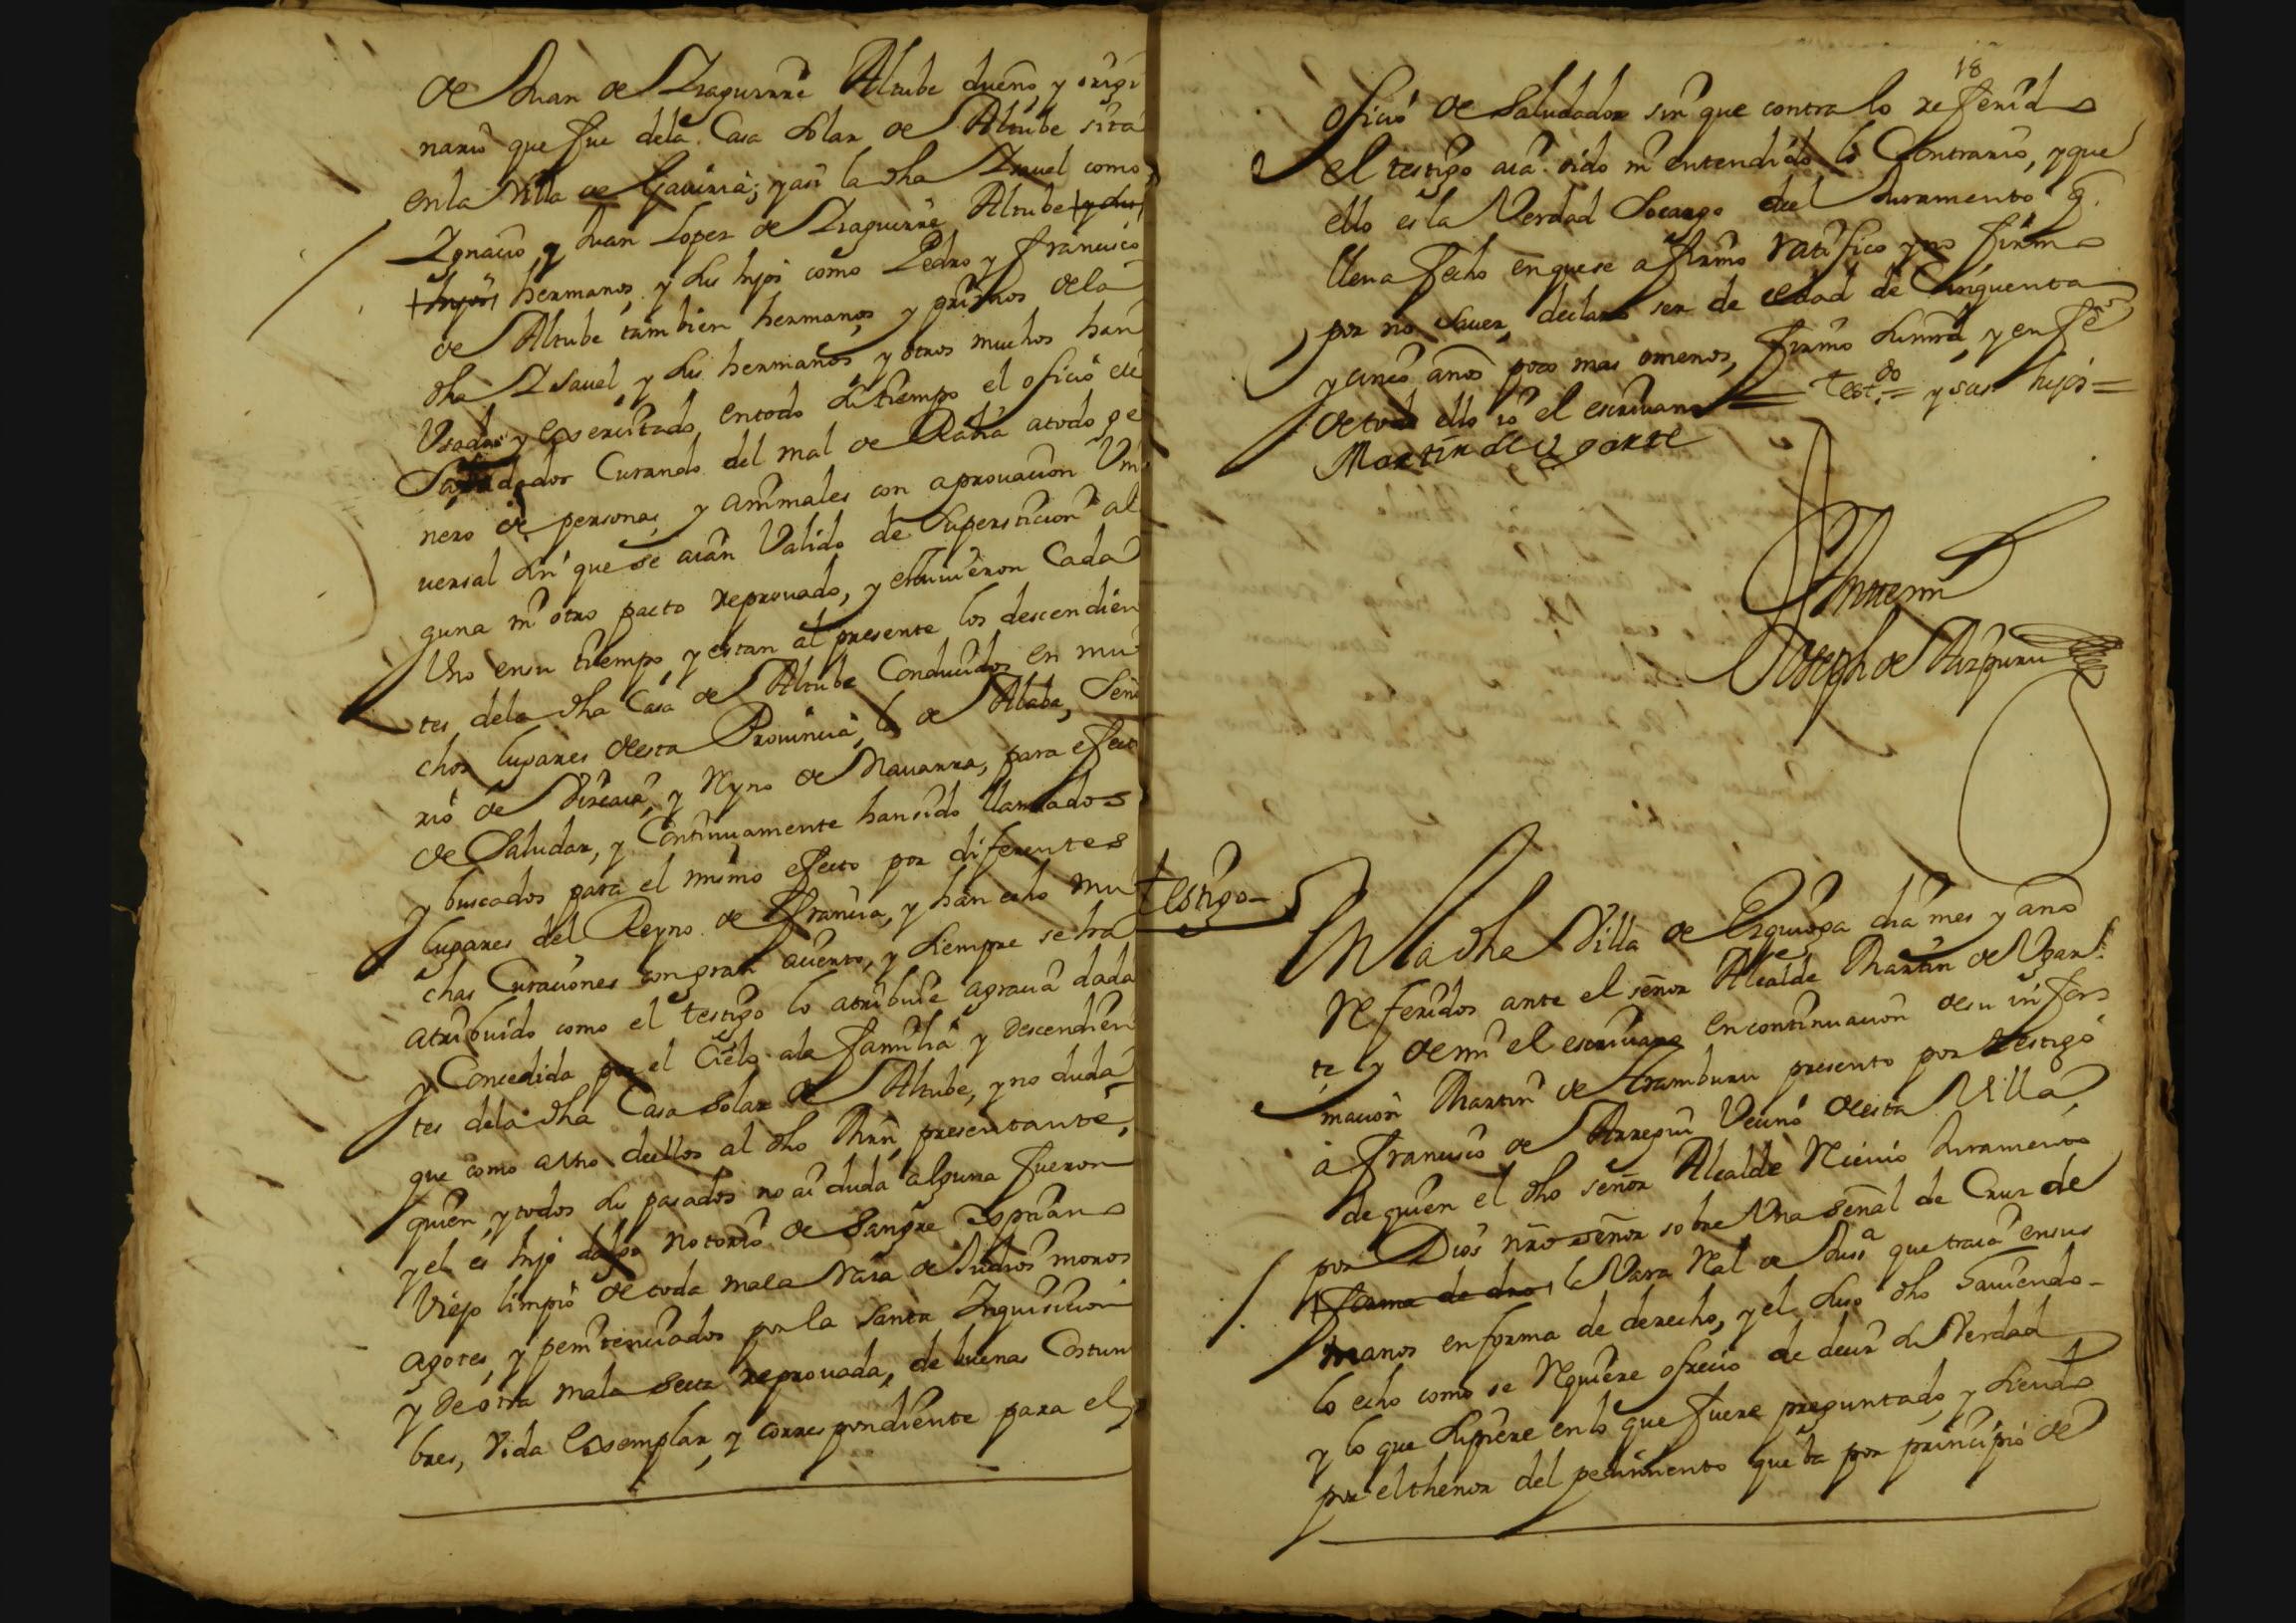 de Juan de Yraguirre Altube dueño, y origi
nario que fue dela Casa Solar de Altube sita
en la Villa de Gaviria; y asi la dha Ysavel como
Ygnacio, y Juan Lopez de Yraguirre Altube y sus
hijos hermanos, y sus hijos como Pedro y Francisco
de Altube tambien hermanos, y primos dela
dha Ysavel, y sus hermanos, y otros muchos han
Usado, y exercitado, en todo su tiempo el oficio de
Saludador Curando del mal de Rabia a todo ge
nero de personas, y animales con aprouacion Vni
uersal sin que se aian Valido de Supersticion al
guna ni otro pacto reprouado, y estuuieron Cada
Vno en su tiempo, y estan al presente los descendien
tes dela dha Casa de Altube Conducidos en mu
chos lugares desta Prouincia, la de Alaba, Seño
rio de Vizcaia, y Reyno de Nauarra, para efecto
de Saludar, y Continuamente han sido llamados
y buscados para el mismo efecto por diferentes
lugares del Reyno de Francia, y han echo mu
chas Curaciones con gran acierto, y siempre se ha
atribuido como el testigo lo atribuie a gracia dada
y Concedida por el Cielo ala familia y descendien
tes dela dha Casa Solar de Altube, y no duda
que como a Vno dellos al dho Mrn, presentante,
quien, y todos sus pasados no ai duda alguna fueron
y el es hijo dalgo notorio de Sangre Xpriano
Viejo limpio de toda mala raza de Judios moros
agotes, y penitenciados por la Santa Inquisicion
y de otra mala secta reprouada, de buenas Costum
bres, Vida exemplar, y correspondiente para el
18
oficio de Saludador sin que contra lo referido
el testigo aia oido ni entendido lo Contrario, y que
ello es la Verdad Socargo del Juramento q
lleua fecho en que se afirmo ratifico y no firmo
por no Sauer, declaro ser de edad de Cinquenta
y cinco años poco mas o menos, firmo su mrd, y en fee
de todo ello yo el escriuano = Testdo = y sus hijos =
Martin de Ugarte
Ante mi
Joseph de Aizpuru
testigo
En la dha Villa de Ezquioga dia mes y año
Referidos ante el señor Alcalde Martin de Ugar
te y de mi el escriuano en continuacion de su infor
macion Martin de Aramburu presento por testigo
a Francisco de Arregui Vecino desta Villa,
de quien el dho señor Alcalde Reciuio Juramento
por Dios nro señor sobre Vna señal de Cruz de
forma de dro la Vara Ral de Jusa que traia en sus
manos en forma de derecho, y el Suso dho hauiendo
lo echo como se Requiere ofrecio de decir la Verdad
y lo que Supiere en lo que fuere preguntado, y siendo
por el thenor del pedimiento que ba por principio de